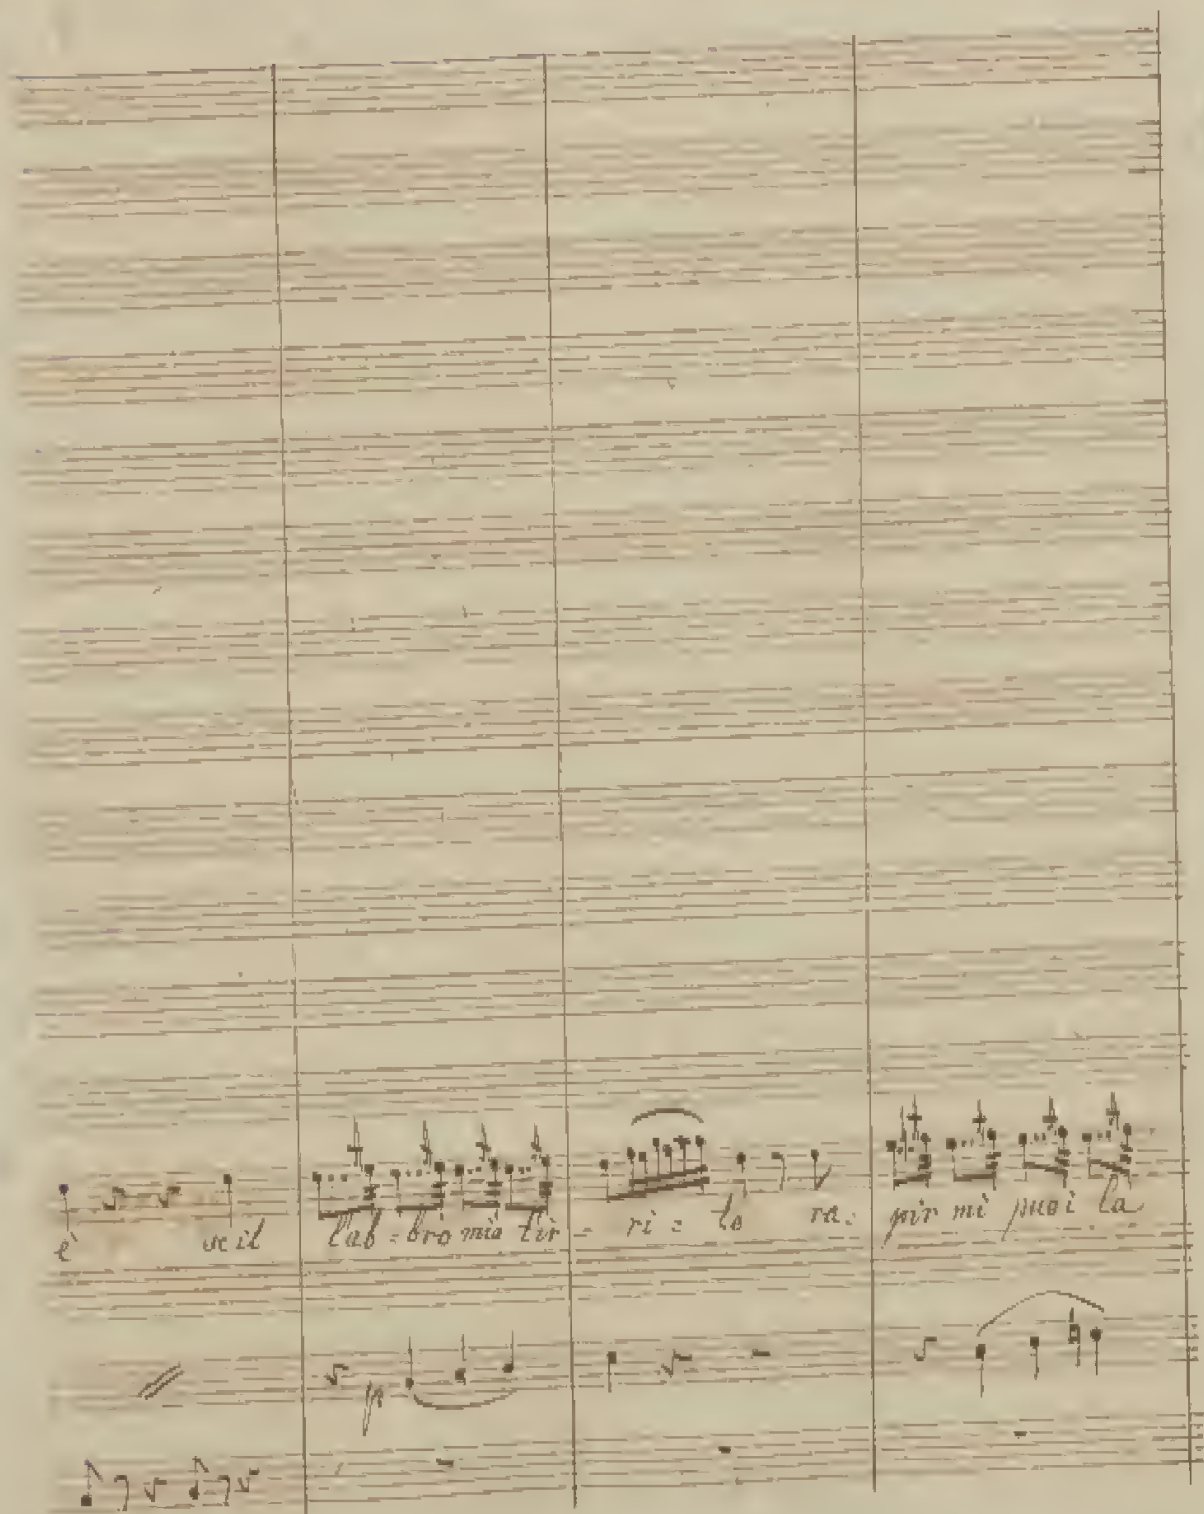 è se il lab = bro mio tir = ri = lo ra = pir mi puoi la
p